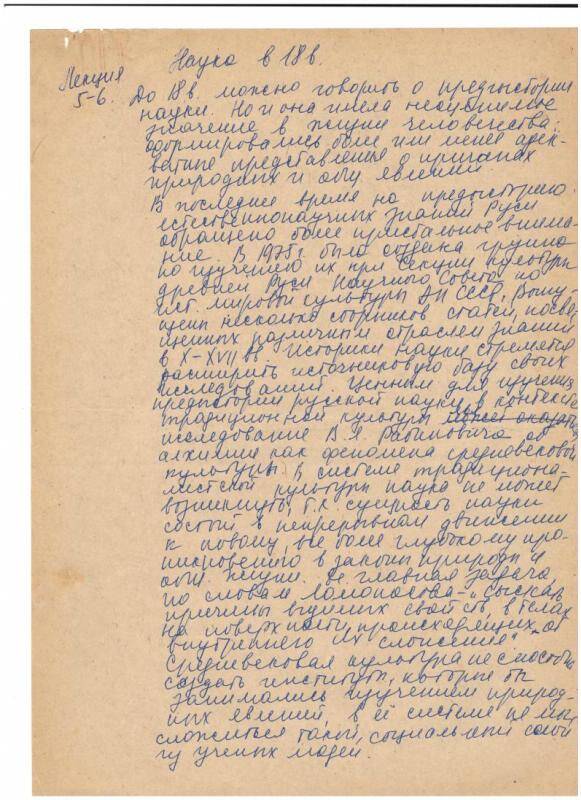 Наука в 18 в.
Лекция
5-6.
До 18 в. можно говорить о предыстории
науки. Но и она имела неоценимое
значение в жизни человечества:
формировались более или менее адек-
ватные представления о причинах
природных и общ. явлений.
В последнее время на предысторию
естественнонаучных знаний Руси
обращено более пристальное внима-
ние. В 1975 г. была создана группа
по изучению их при Секции культуры
древней Руси Научного Совета по
ист. мировой культуры АН СССР. Выпу-
щены несколько сборников статей, посвя-
щенных различным отраслям знаний
в X-XVII вв. Историки науки стремятся
расширить источниковую базу своих
исследований. Ценным для изучения
предыстории русской науки в контексте
традиционной культуры может оказаться
исследование В.Л. Рабиновича об
алхимии как феномене средневековой
культуры. В системе традициона-
листской культуры наука не может
возникнуть, т.к. сущность науки
состоит в непрерывном движении
к новому, все более глубокому про-
никновению в законы природы и
общ. жизни. Ее главная задача,
по словам Ломоносова - "сыскать
причины видимых свойств, в телах
на поверхности происходящих, от
внутреннего их сложения".
Средневековая культура не способна
создать институты, которые бы
занимались изучением природ-
ных явлений, в её системе не мог
сложиться такой, социальный слой
ученых людей.